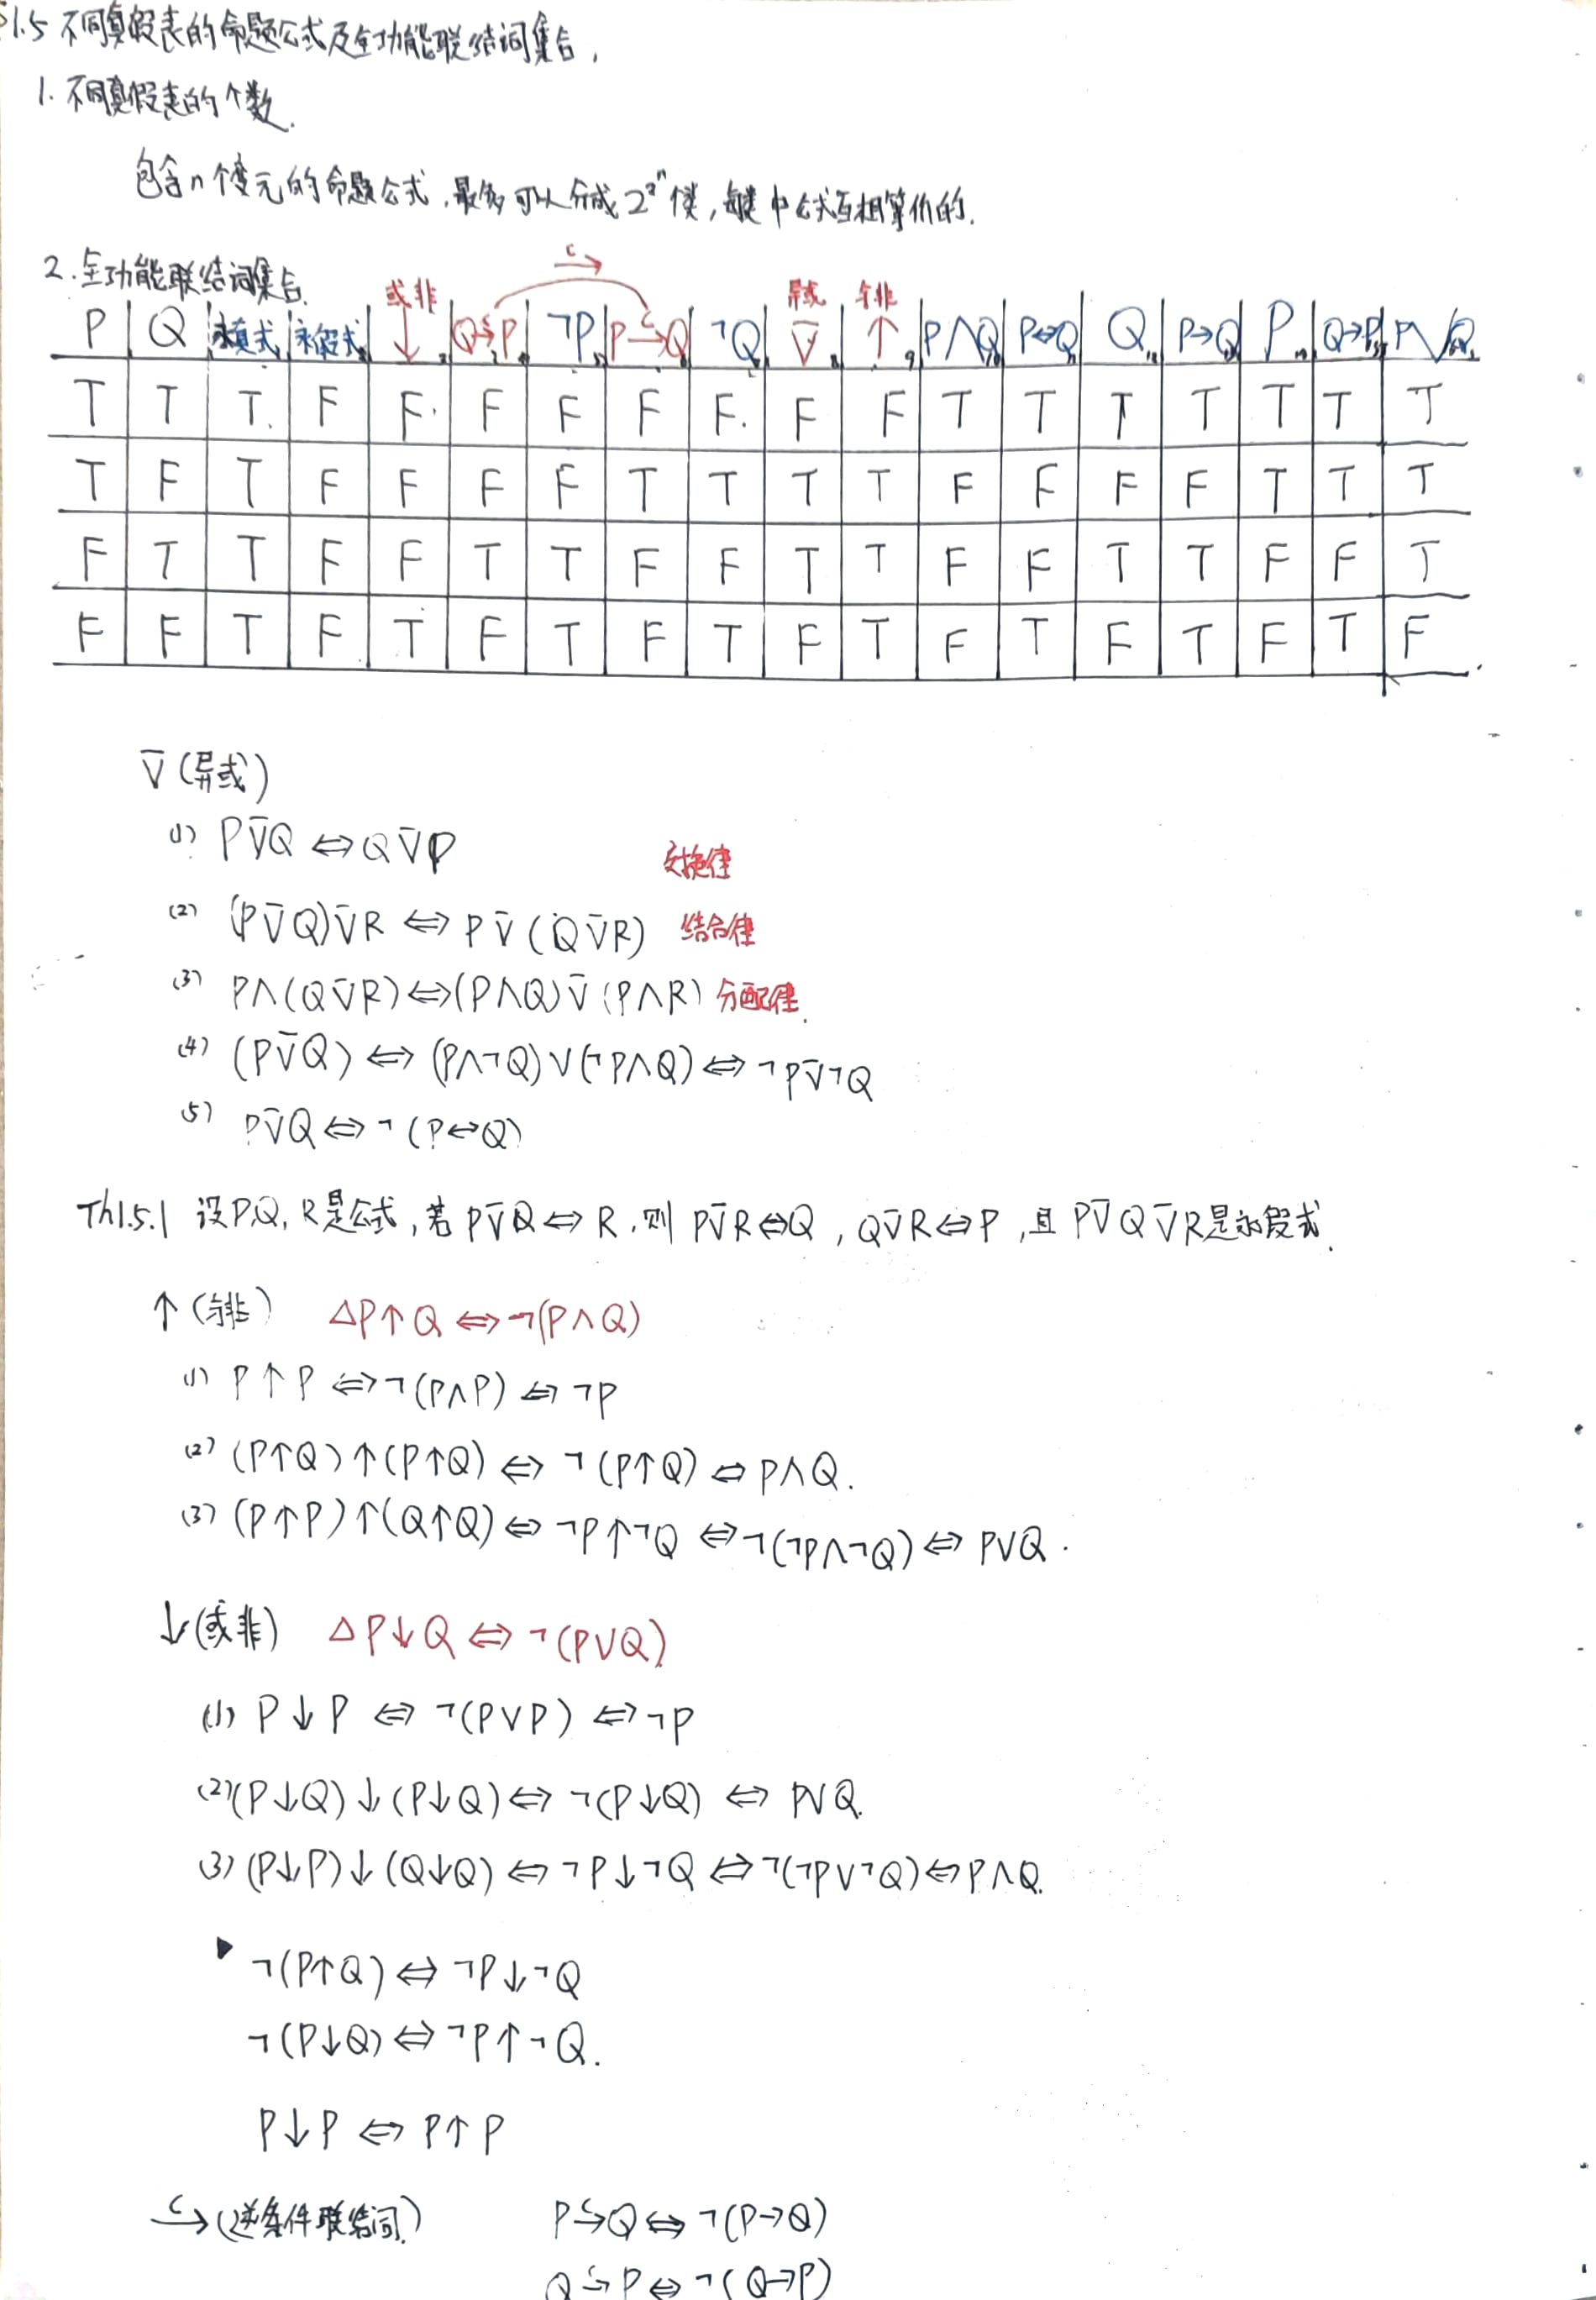 §1.5 不同真假表的命题公式及全功能联结词集合,
1. 不同真假表的个数.
包含n个变元的命题公式,最多可以分成2^{2^n}类,每类中公式互相等价的.
2. 全功能联结词集合.
P Q 永真式 永假式 或非↓ Q^c→P ¬P P^c→Q ¬Q 异或 V̄ 与非↑ P∧Q P↔Q Q P→Q P Q→P P∨Q
T T T F F F F F F F F T T T T T T T
T F T F F F F T T T T F F F F T T T
F T T F F T T F F T T F F T T F F T
F F T F T F T F T F T F T F T F T F
V̄ (异或)
(1) PV̄Q ⇔ QV̄P 交换律
(2) (PV̄Q)V̄R ⇔ PV̄(QV̄R) 结合律
(3) P∧(QV̄R) ⇔ (P∧Q)V̄(P∧R) 分配律.
(4) (PV̄Q) ⇔ (P∧¬Q)∨(¬P∧Q) ⇔ ¬PV̄¬Q
(5) PV̄Q ⇔ ¬(P↔Q)
Th1.5.1 设P,Q,R是公式,若PV̄Q ⇔ R,则PV̄R⇔Q, QV̄R⇔P,且PV̄QV̄R是永假式.
↑(与非) △P↑Q ⇔ ¬(P∧Q)
(1) P↑P ⇔ ¬(P∧P) ⇔ ¬P
(2) (P↑Q)↑(P↑Q) ⇔ ¬(P↑Q) ⇔ P∧Q.
(3) (P↑P)↑(Q↑Q) ⇔ ¬P↑¬Q ⇔ ¬(¬P∧¬Q) ⇔ P∨Q.
↓(或非) △P↓Q ⇔ ¬(P∨Q)
(1) P↓P ⇔ ¬(P∨P) ⇔ ¬P
(2) (P↓Q)↓(P↓Q) ⇔ ¬(P↓Q) ⇔ P∨Q.
(3) (P↓P)↓(Q↓Q) ⇔ ¬P↓¬Q ⇔ ¬(¬P∨¬Q) ⇔ P∧Q.
▶ ¬(P↑Q) ⇔ ¬P↓¬Q
¬(P↓Q) ⇔ ¬P↑¬Q.
P↓P ⇔ P↑P
^c→(逆条件联结词) P^c→Q ⇔ ¬(P→Q)
Q^c→P ⇔ ¬(Q→P)